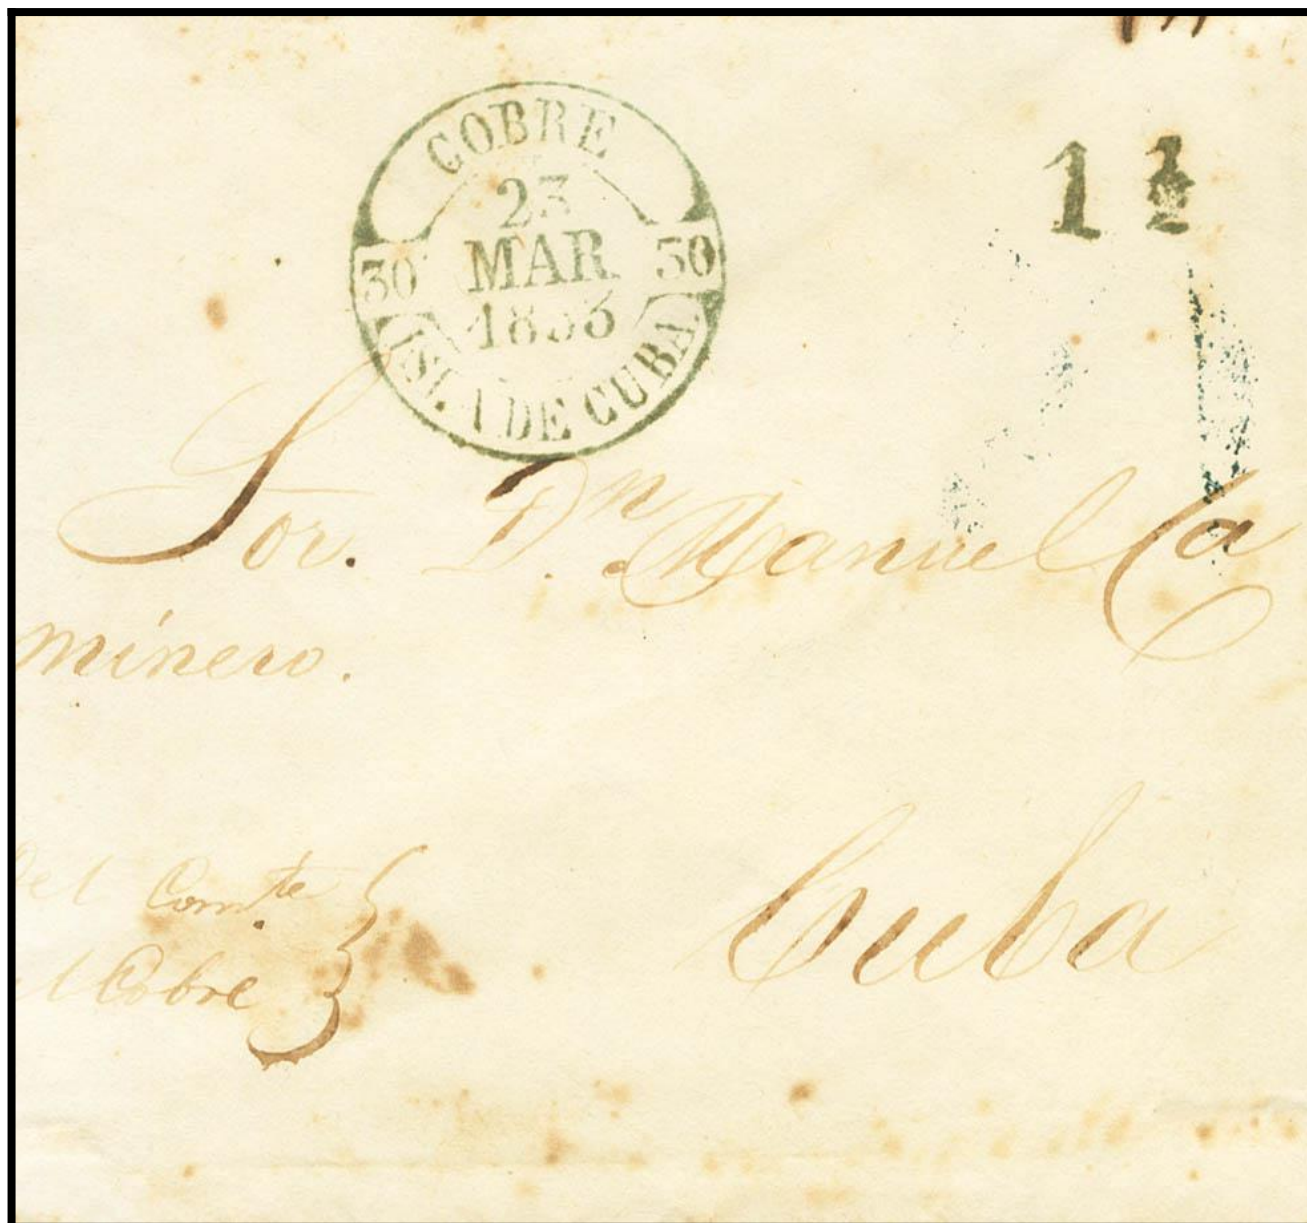 COBRE
23
MAR.
30 30
1853
ISLA DE CUBA.
1 ½
Sor. Dn. Manuel Ca
minero.
Del Comte
el Cobre
Cuba